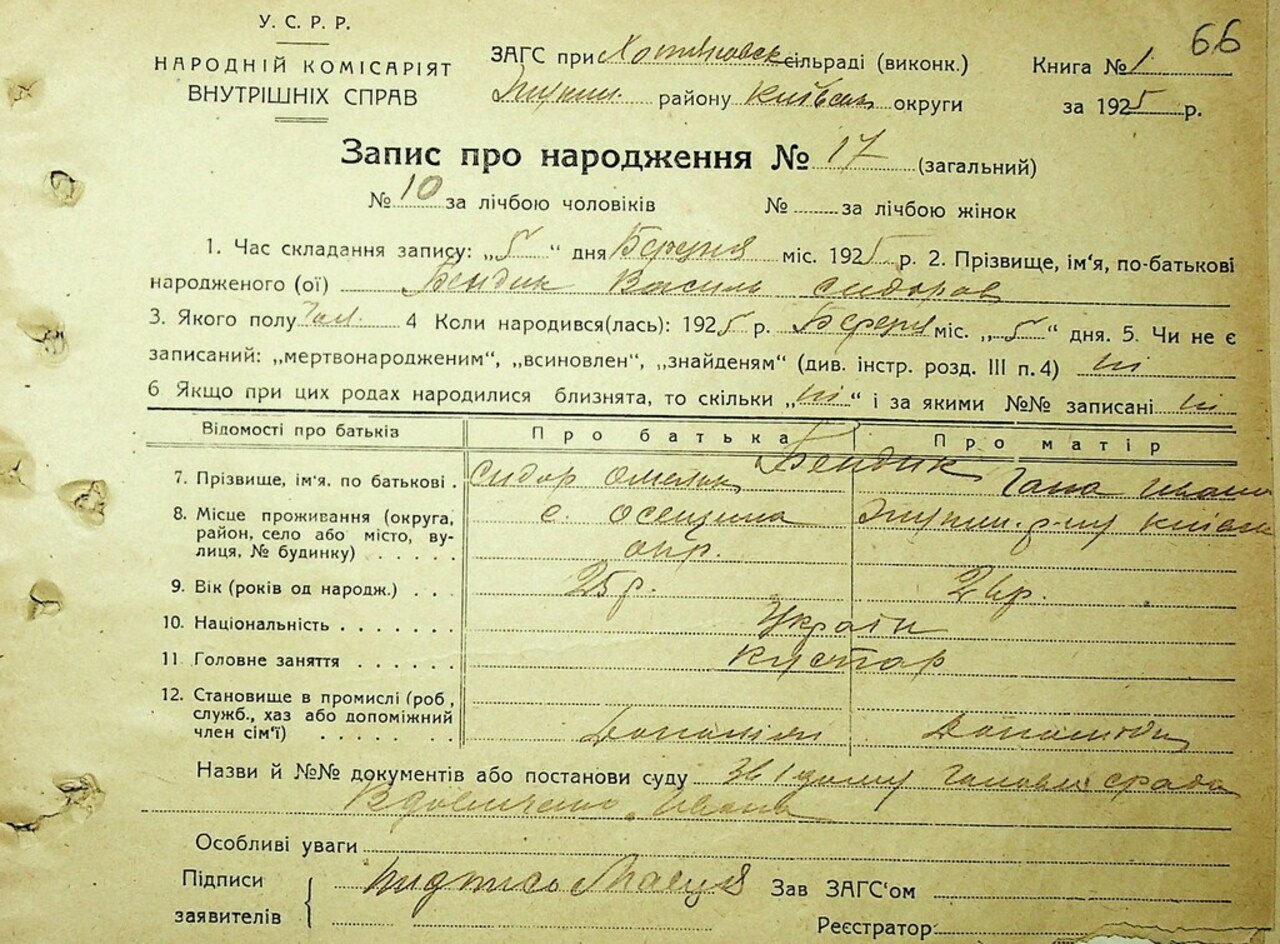 66
У. С. Р. Р.
НАРОДНІЙ КОМІСАРІЯТ
ВНУТРІШНІХ СПРАВ
ЗАГС при Хотянівск сільраді (виконк.)
району Київськ округи
Книга № 1
за 1925 р.
Запис про народження № 17 (загальний)
№ 10 за лічбою чоловіків № за лічбою жінок
1. Час складання запису: „5“ дня Березня міс. 1925 р. 2. Прізвище, ім‘я, по-батькові
народженого (ої) Бендик Василь Сидоров
3. Якого полу Чол. 4 Коли народився(лась): 1925 р. Березня міс. „5“ дня. 5. Чи не є
записаний: „мертвонародженим“, „всиновлен“, „знайденям“ (див. інстр. розд. III п. 4) ні
6 Якщо при цих родах народилися близнята, то скільки „ні“ і за якими №№ записані ні
Відомості про батьків Про батька Про матір
7. Прізвище, ім‘я. по батькові . Сидор Омельк Бендик Гана Иван
8. Місце проживання (округа, с. Осещина р-ну
район, село або місто, ву-
лиця, № будинку) . . . . окр.
9. Вік (років од народж.) . . . 25 р.
10. Національність . . . . . . Україн
11 Головне заняття . . . . . . Кустар
12. Становище в промислі (роб,
служб., хаз або допоміжний
член сім‘ї) . . . . . .
Назви й №№ документів або постанови суду
Ивана
Особливі уваги
Підписи
заявителів
Зав ЗАГС‘ом
Реєстратор: